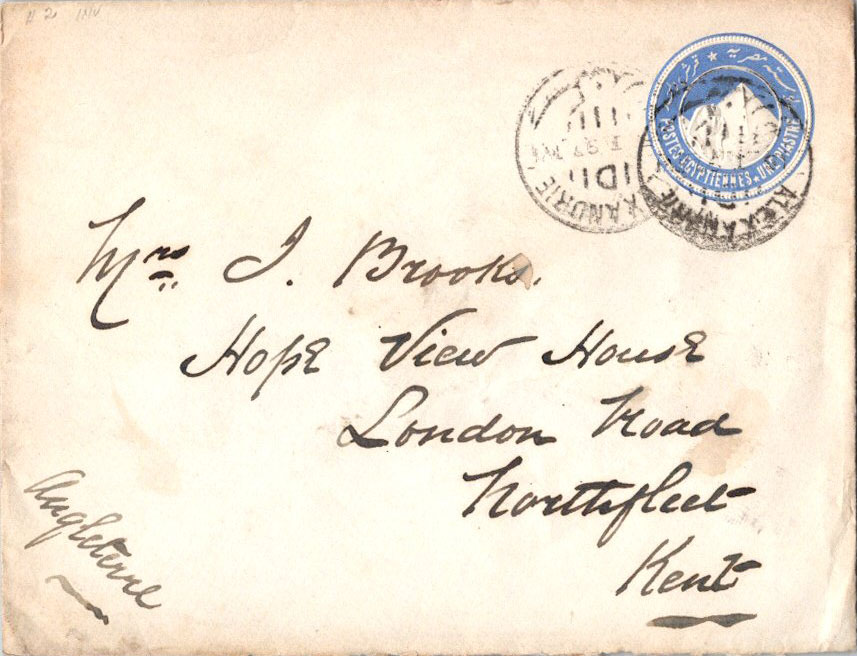 بوسته مصريه ★ قرش
POSTES EGYPTIENNES ★ UNE PIASTRE
ALEXANDRIE
Mrs J. Brooks.
Hope View House
London Road
Northfleet
Kent
Angleterre